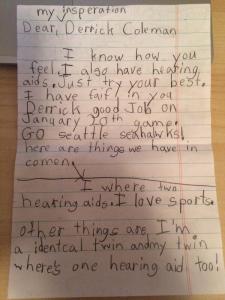 my insperation
Dear, Derrick Coleman
I know how you
feel. I also have hearing
aids. Just try your best.
I have faif in you
Derrick good Job on
January 20th game.
GO seattle seahawks!
here are things we have in
comen.
I where two
hearing aids. I love sports.
other things are, I'm
a identcal twin and my twin
where's one hearing aid too!